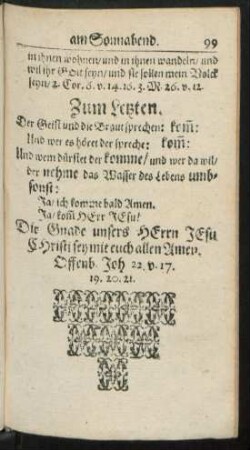 am Sonnabend. 99
in ihnen wohnen/ und in ihnen wandeln/ und
wil ihr GOtt seyn/ und sie sollen mein Volck
seyn/ 2. Cor. 6. v. 14. 16. 3. M. 26. v. 12.
Zum Letzten.
Der Geist und die Braut sprechen: kom̃:
Und wer es höret der spreche: kom̃:
Und wem dürstet der komme/ und wer da wil/
der nehme das Wasser des Lebens umb-
sonst:
Ja/ ich komme bald Amen.
Ja/ kom̃ HErr JEsu!
Die Gnade unsers HErrn JEsu
CHristi sey mit euch allen Amen.
Offenb. Joh 22. v. 17.
19. 20. 21.